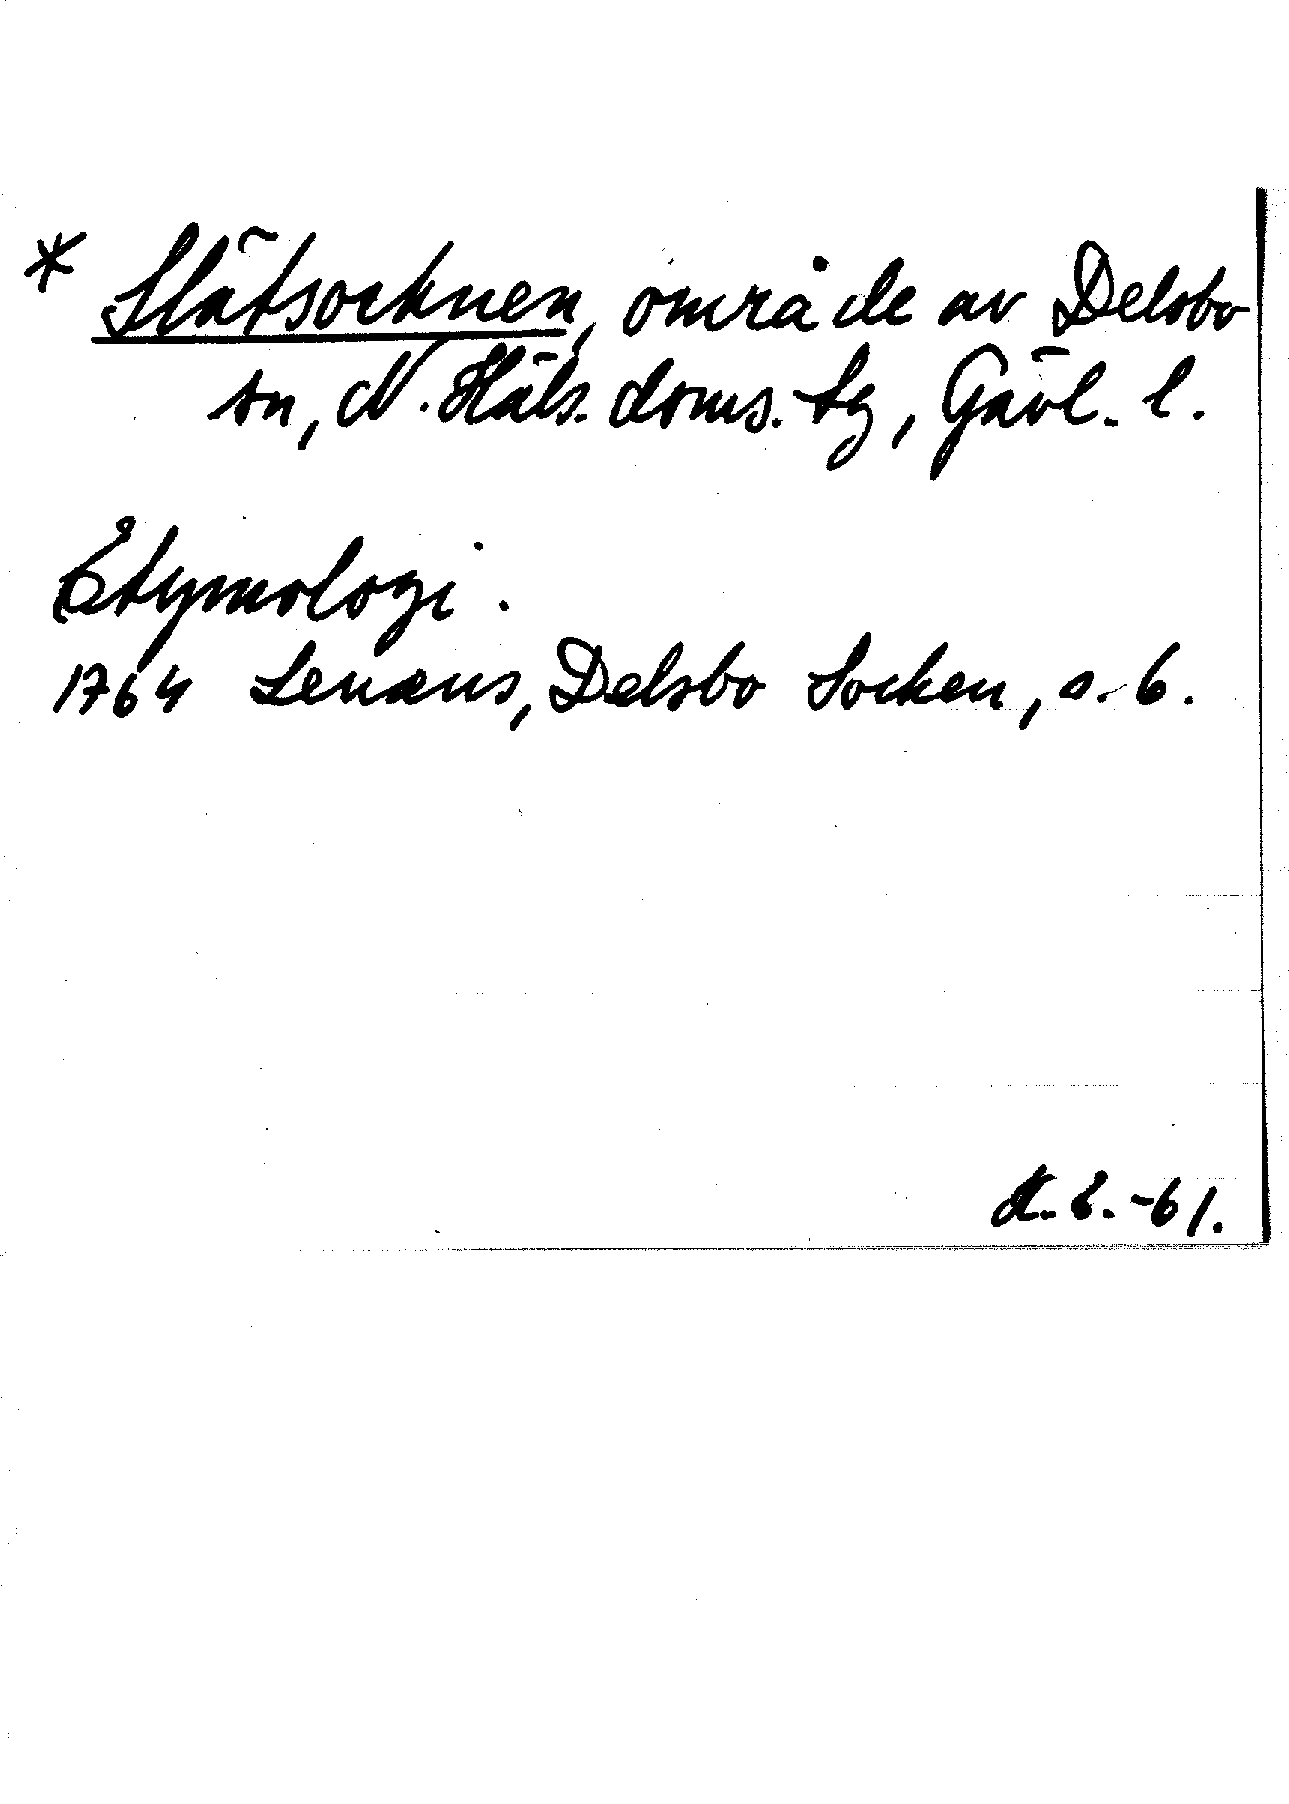 * Slätsocknen, område av Delsbo
sn, N. Häls. doms. tg, Gävl. l.
Etymologi.
1764 Lenæus, Delsbo Socken, s. 6.
-61.